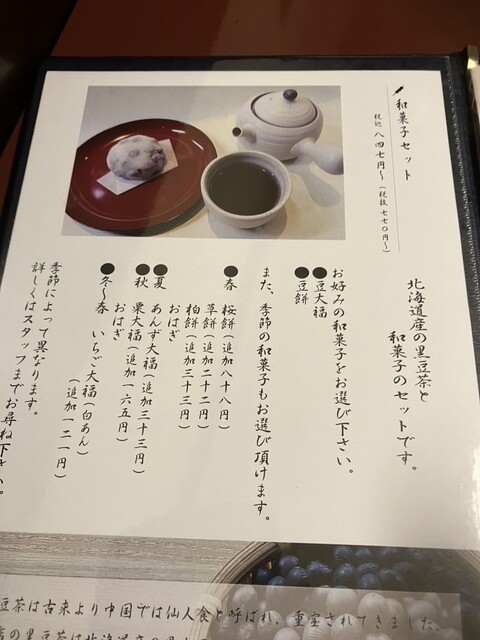 和菓子セット
税込 八四七円～（税抜 七七〇円～）
北海道産の黒豆茶と
和菓子のセットです。
お好みの和菓子をお選び下さい。
●豆大福
●豆餅
また、季節の和菓子もお選び頂けます。
●春 桜餅（追加八十八円）
草餅（追加二十二円）
柏餅（追加三十三円）
おはぎ
●夏 あんず大福（追加三十三円）
●秋 栗大福（追加一六五円）
おはぎ
●冬～春 いちご大福（白あん）
（追加一二一円）
季節によって異なります。
詳しくはスタッフまでお尋ね下さい。
豆茶は古来より中国では仙人食と呼ばれ、重宝されてきました。
の黒豆茶は北海道産の黒